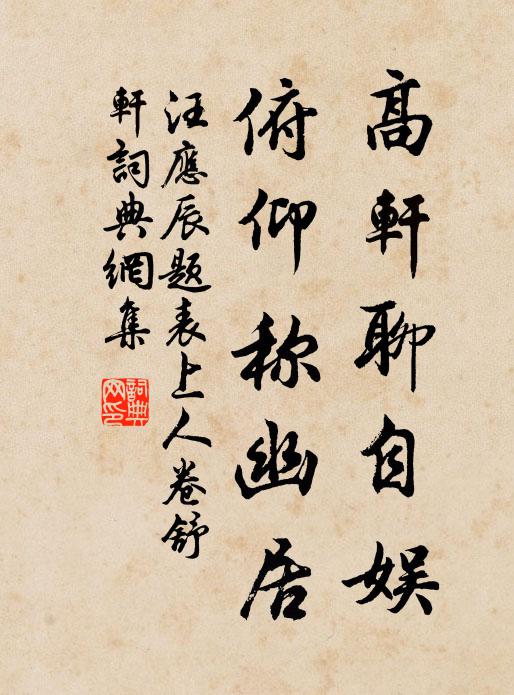 高軒聊自娱
俯仰称幽居
汪應辰題表上人卷舒
軒詞典網集
詞典
网印